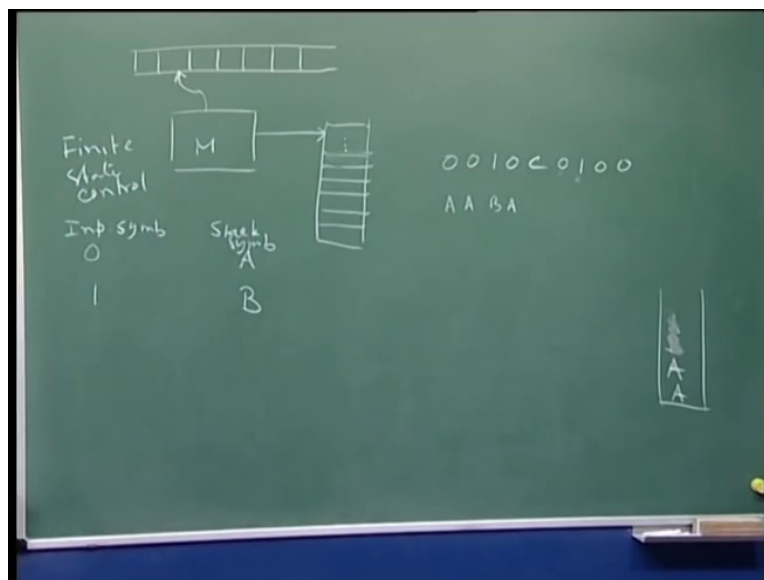 M
Finite
State
control
Inp symb
Stack
symb
0 A
1 B
0 0 1 0 C 0 1 0 0
A A B A
A
A